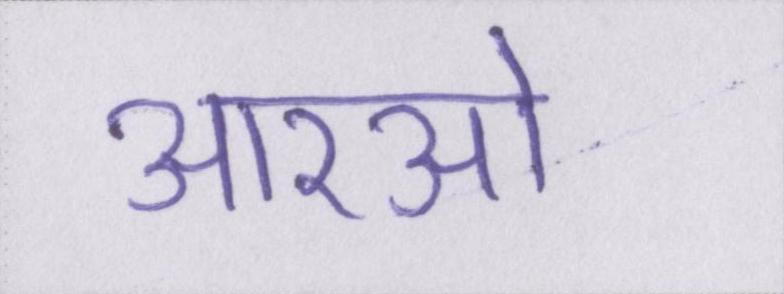 आरओ